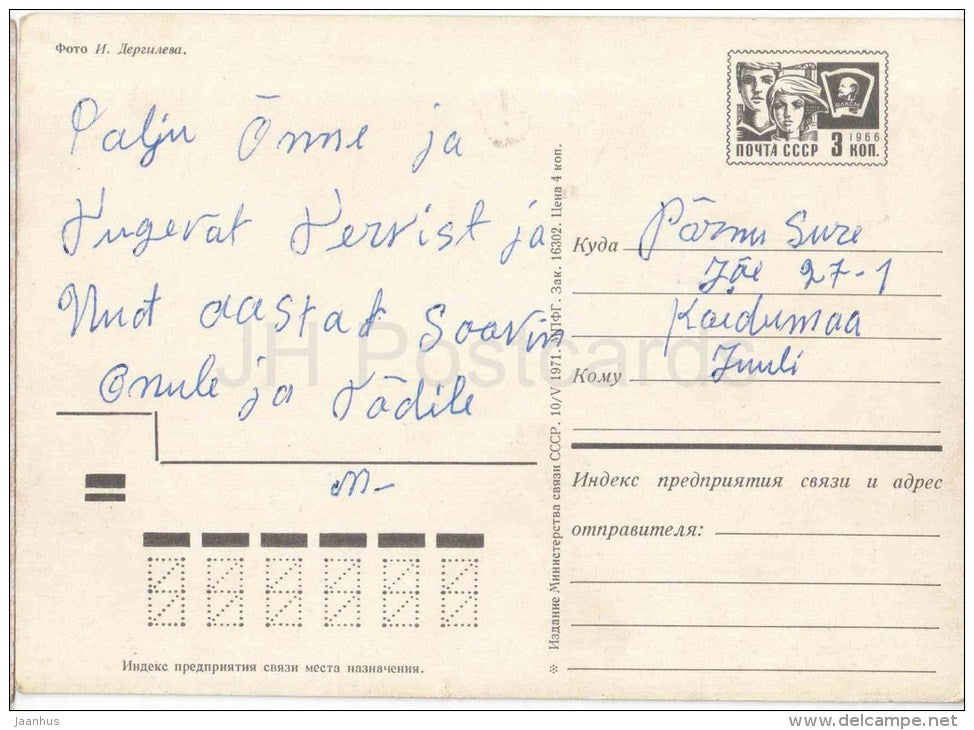 Фото И. Дергилева.
Palju Õnne ja
Tugevat Tervist ja
Uut aastat Soovin
Onule ja Tädile
M-
ВЛКСМ
1966
ПОЧТА СССР 3 КОП.
Издание Министерства связи СССР. 10/V 1971. МПФГ. Зак. 16302. Цена 4 коп.
Куда Pärnu Sure
Jõe 27-1
Kaidumaa
Кому Juuli
Индекс предприятия связи и адрес
отправителя:
Индекс предприятия связи места назначения.
JH Postcards
Jaanhus
www.delcampe.net